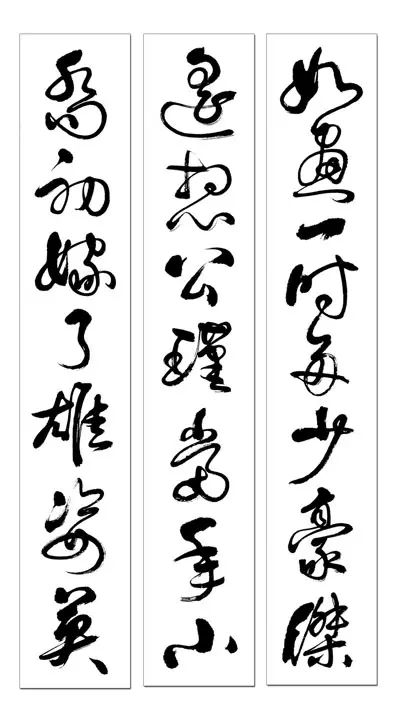 如畫一時多少豪傑
遙想公瑾當年小
喬初嫁了雄姿英